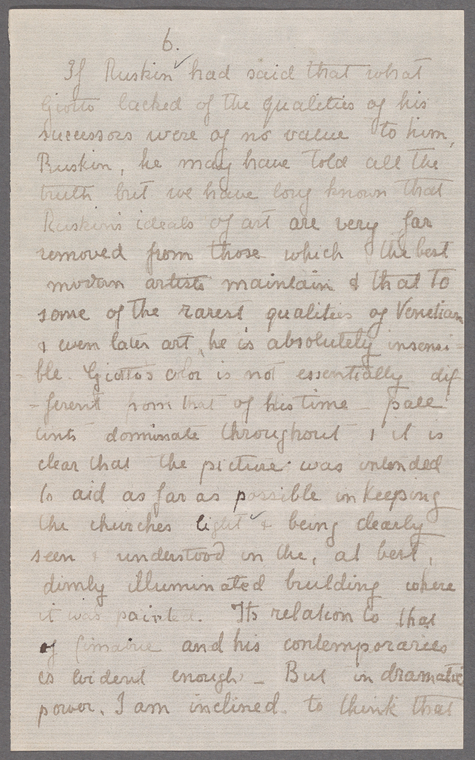 6.
If Ruskin had said that what
Giotto lacked of the qualities of his
successors were of no value to him,
Ruskin, he may have told all the
truth, but we have long known that
Ruskin's ideals of art are very far
removed from those which the best
modern artists maintain & that to
some of the rarest qualities of Venetian
& even later art, he is absolutely insensi-
ble. Giotto's color is not essentially dif
-ferent from that of his time – pale
tints dominate throughout & it is
clear that the picture was intended
to aid as far as possible in keeping
the churches light & being clearly
seen & understood in the, at best,
dimly illuminated building where
it was painted. Its relation to that
of Cimabue and his contemporaries
is evident enough – But in dramatic
power, I am inclined to think that